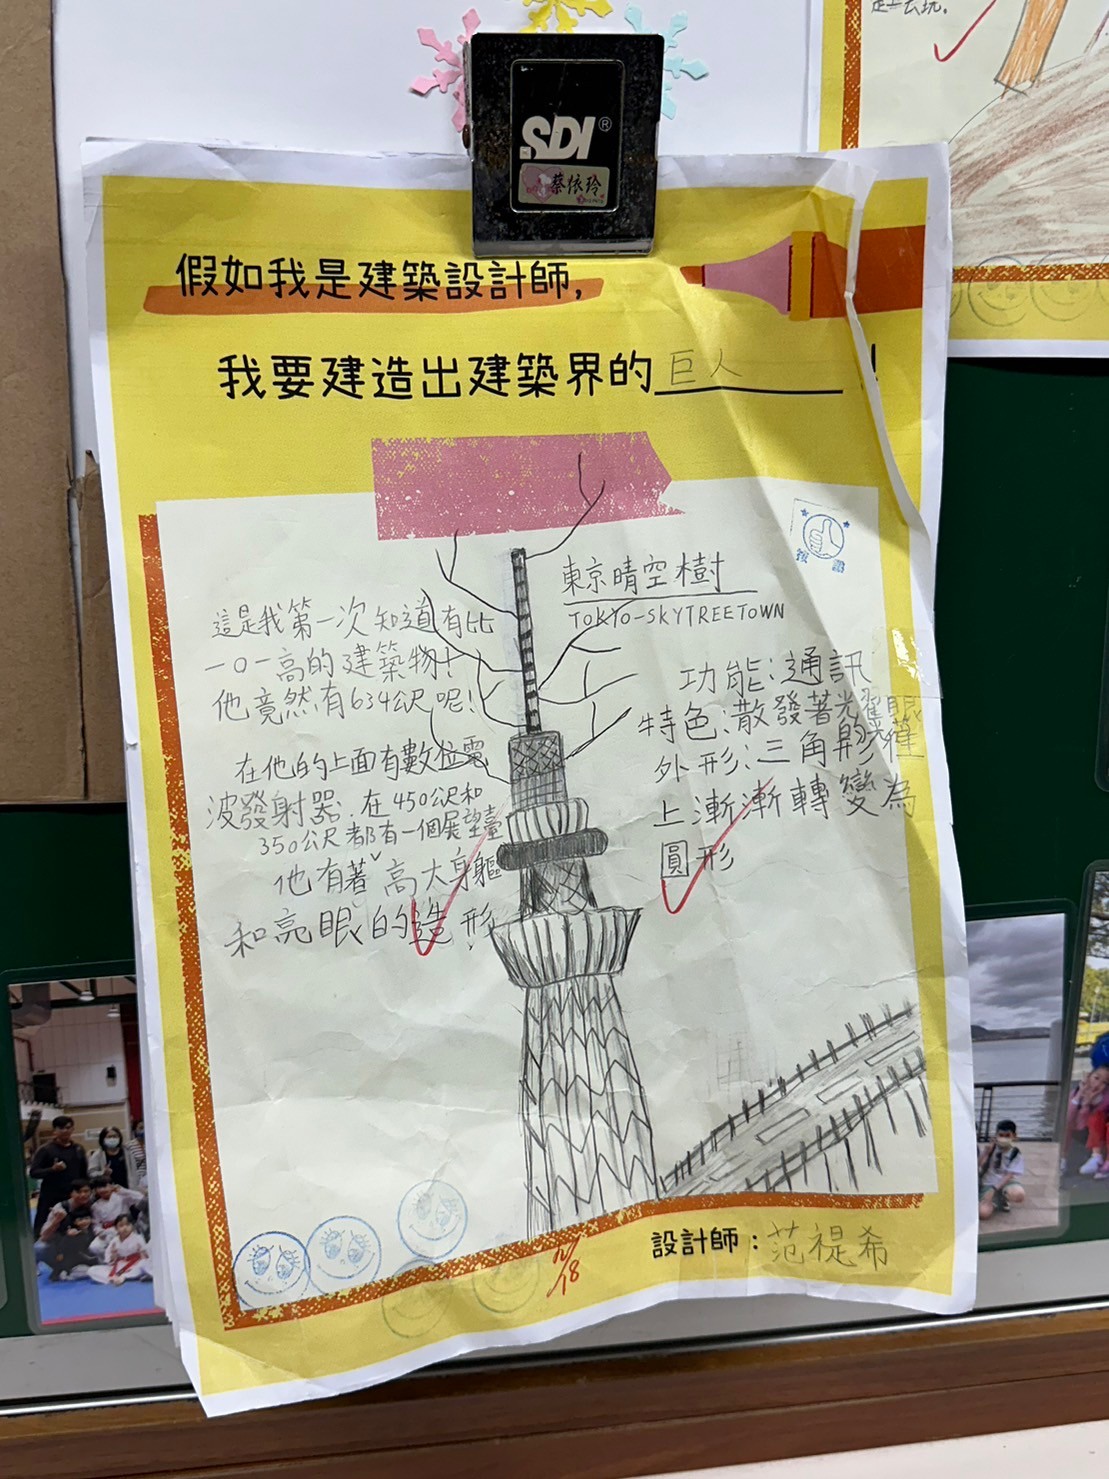 走上去玩。
SDI®
蔡依玲
假如我是建築設計師,
我要建造出建築界的巨人!
東京晴空樹
TOKYO-SKYTREETOWN
這是我第一次知道有比
一0一高的建築物!
他竟然有634公尺呢!
在他的上面有數位電
波發射器,在450公尺和
350公尺都有一個展望臺
他有著高大身軀
和亮眼的造形!
功能:通訊
特色:散發著光耀眼
外形:三角形
上漸漸轉變為
圓形
11/18
設計師:范禔希